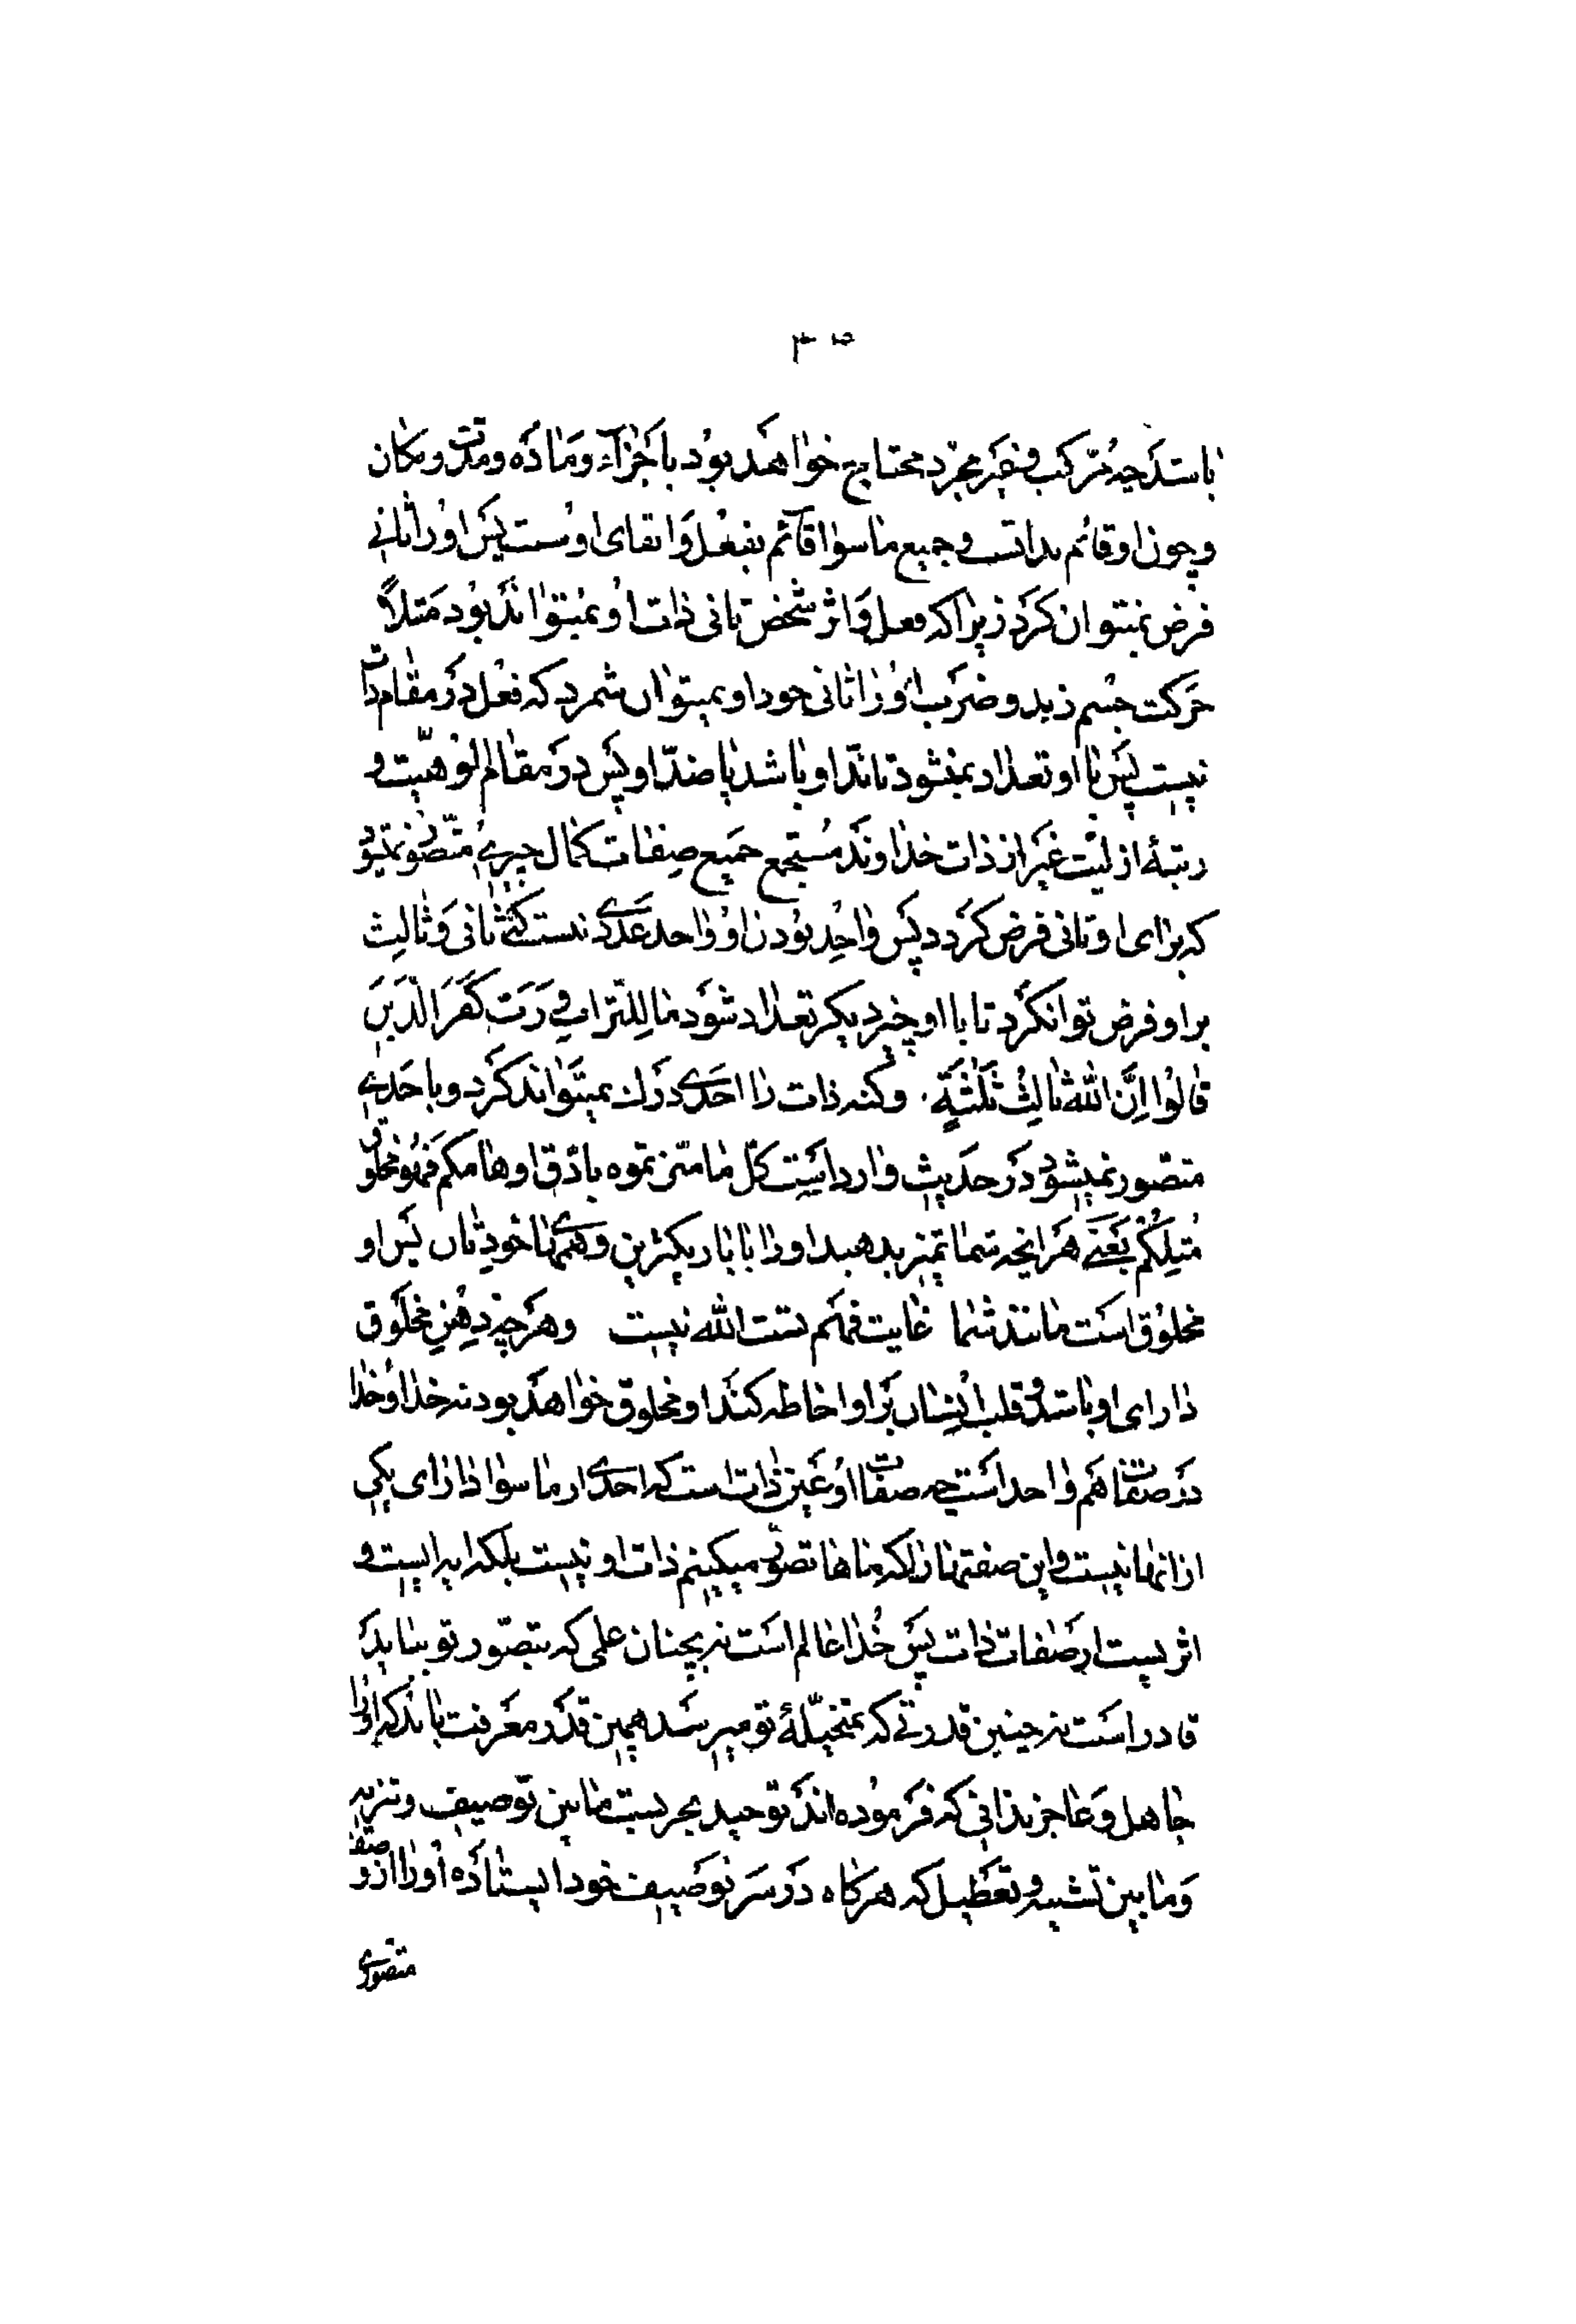 ۳۵
باشد چه مرکب و غیر مجرد محتاج خواهد بود باجزآء و ماده و مدت و مکان
و چون او قائم بذاتست و جمیع ما سوا قآئم بفعل و ابقای اوست پس او را ثانی
فرض نمیتوان کرد زیرا که فعل و اثر شخص ثانی ذات او نمیتواند بود مثلاً
حرکت جسم زید و ضرب او را ثانی خود او نمیتوان شمرد که فعل در مقام ذات
نیست پس با او تعداد نمیشود تا ندّ او باشد یا ضدّ او پس در مقام الوهیّت و
رتبهٔ ازلیّت غیر از ذات خداوند مستجمع جمیع صفات کمال چیزی متصوّر نمیشود
که برای او ثانی فرض کردد پس واحد بودن او واحد عددی نیست که ثانی و ثالث
بر او فرض توانکرد تا با او چیز دیکر تعداد شود ما للتراب و ربّ کَفَرَ الّذینَ
قالُوا اِنَّ اللهَ ثالِثُ ثَلٰثَةٍ . و کنه ذات را احدی درك نمیتواند کرد و باحدی
متصّور نمیشود در حدیث وارد است کلّ ما میّزتموه بادّق اوهامکم فهو مخلوق
مثلکم یعنی هر انچه شما تمیز بدهید او را با باریکترین وهمهای خودتان پس او
مخلوق است مانند شما غایت فهم تست الله نیست و هر چه ذهن مخلوق
دارای او باشد و قلب ایشان بر او احاطه کند او مخلوق خواهد بود نه خدا و خدا
در صفات هم واحد است چه صفات او عین ذات است که احدی از ما سوا دارای یکی
از انها نیست و این صفتها را که ماها تصوّر میکنیم ذات او نیست بلکه ایه ایست و
اثریست از صفات ذات پس خدا عالم است نه بچنان علمی که بتصّور تو بیاید
قادر است نه چنین قدرتی که بمتخیّلهٔ تو میرسد همین قدر معرفت باید که او را
جاهل و عاجز ندانی که فرموده اند توحید بحریست مابین توصیف و تنزیه
و مابین تشبیه و تعطیل که هرکاه در سر توصیف خود ایستاده او را از و صفت
متصوری